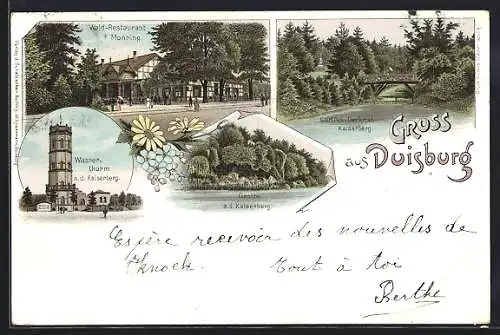 Wald-Restaurant
Monning.
Kaiserberg.
Gruss
aus Duisburg
Wasser-
thurm
a. d. Kaiserberg.
Grotte
a. d. Kaiserberg.
Espère recevoir des nouvelles de
Knock. Tout à toi
Berthe